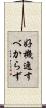 好機逸す
べからず